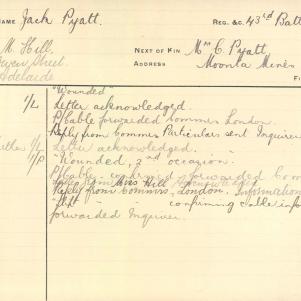 NAME Jack Pyatt. REG. &C. 43rd Batt
M. Hill. NEXT OF KIN Mrs C. Pyatt,
Street. ADDRESS Moonta Mines
Adelaide
"Wounded"
Letter acknowledged.
P/Cable forwarded Commrs London.
Reply from Commrs Particulars sent Inquirer
Letter acknowledged.
"Wounded, 2nd occasion."
P/Cable - confirmed - forwarded Com
Miss Hill
Reply from Commrs, London. Information
" Left - " - confirming cable info
forwarded Inquirer.